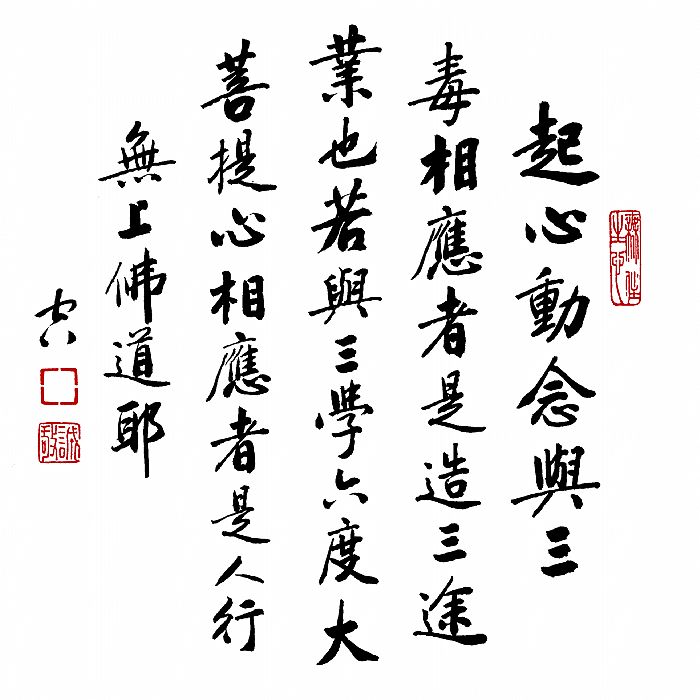 起心動念與三
毒相應者是造三途
業也若與三學六度大
菩提心相應者是人行
無上佛道耶